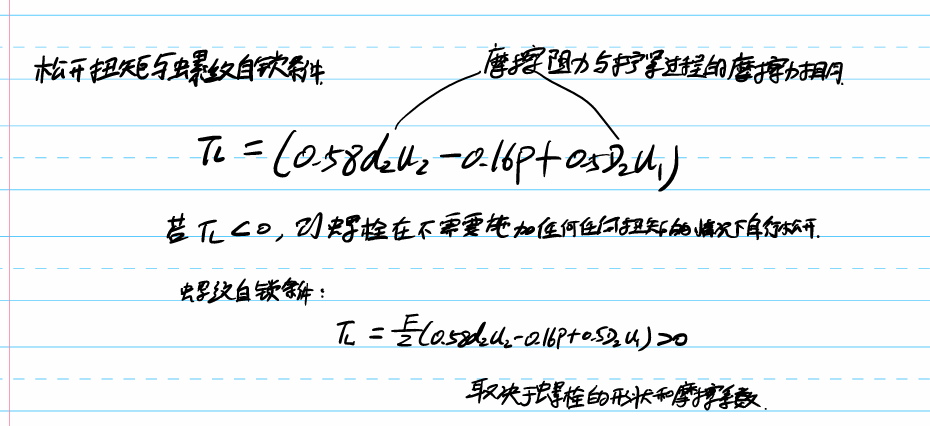 松开扭矩与螺纹自锁条件
摩擦阻力与拧紧过程的摩擦力相同.
TL = (0.58d₂u₂ - 0.16P + 0.5D₂u₁)
若 TL < 0, 则螺栓在不需要施加任何任何扭矩的情况下自行松开.
螺纹自锁条件:
TL = F/2 (0.58d₂u₂ - 0.16P + 0.5D₂u₁) > 0
取决于螺栓的形状和摩擦系数.